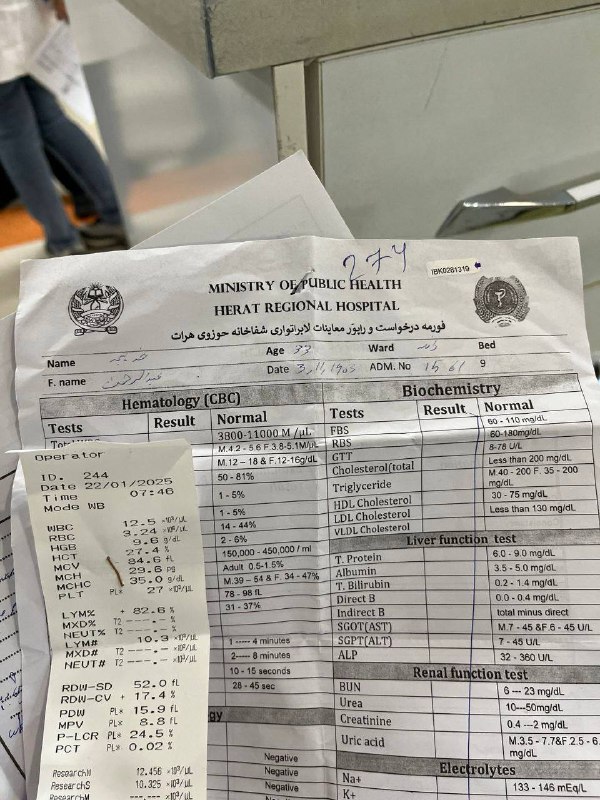 274
IBK0281319
MINISTRY OF PUBLIC HEALTH
HERAT REGIONAL HOSPITAL
فورمه درخواست و راپور معاینات لابراتواری شفاخانه حوزوی هرات
Name Age 33 Ward Bed
F. name Date ADM. No 9
Hematology (CBC)
Tests Result Normal
3800-11000 M /µL
M.4.2 - 5.6 F.3.8-5.1M/µL
M.12 – 18 & F.12-16g/dL
50 - 81%
1 - 5%
1 - 5%
14 - 44%
2 - 6%
150,000 - 450,000 / ml
Adult 0.5-1.5%
M.39 – 54 & F. 34 - 47%
78 - 98 fL
31 - 37%
1 ----- 4 minutes
2----- 8 minutes
10 - 15 seconds
28 - 45 sec
Negative
Negative
Negative
Biochemistry
Tests Result Normal
FBS 60 - 110 mg/dL
RBS 60-180mg/dL
GTT 8-78 U/L
Cholesterol(total Less than 200 mg/dL
Triglyceride M.40 - 200 F. 35 - 200 mg/dL
HDL Cholesterol 30 - 75 mg/dL
LDL Cholesterol Less than 130 mg/dL
VLDL Cholesterol
Liver function test
T. Protein 6.0 - 9.0 mg/dL
Albumin 3.5 - 5.0 mg/dL
T. Bilirubin 0.2 - 1.4 mg/dL
Direct B 0.0 - 0.4 mg/dL
Indirect B total minus direct
SGOT(AST) M.7 - 45 &F.6 - 45 U/L
SGPT(ALT) 7 - 45 U/L
ALP 32 - 360 U/L
Renal function test
BUN 6 --- 23 mg/dL
Urea 10---50mg/dL
Creatinine 0.4 ---2 mg/dL
Uric acid M.3.5 - 7.7&F.2.5 - 6.
mg/dL
Electrolytes
Na+ 133 - 146 mEq/L
K+
Operator
ID. 244
Date 22/01/2025
Time 07:46
Mode WB
WBC 12.5 ×10³/µL
RBC 3.24 ×10⁶/µL
HGB 9.6 g/dL
HCT 27.4 %
MCV 84.6 fL
MCH 29.6 pg
MCHC 35.0 g/dL
PLT PL* 27 ×10³/µL
LYM% + 82.6 %
MXD% T2 ---.- %
NEUT% T2 ---.- %
LYM# 10.3 ×10³/µL
MXD# T2 ---.- ×10³/µL
NEUT# T2 ---.- ×10³/µL
RDW-SD 52.0 fL
RDW-CV + 17.4 %
PDW PL* 15.9 fL
MPV PL* 8.8 fL
P-LCR PL* 24.5 %
PCT PL* 0.02 %
ResearchW 12.456 ×10³/µL
ResearchS 10.325 ×10³/µL
ResearchM